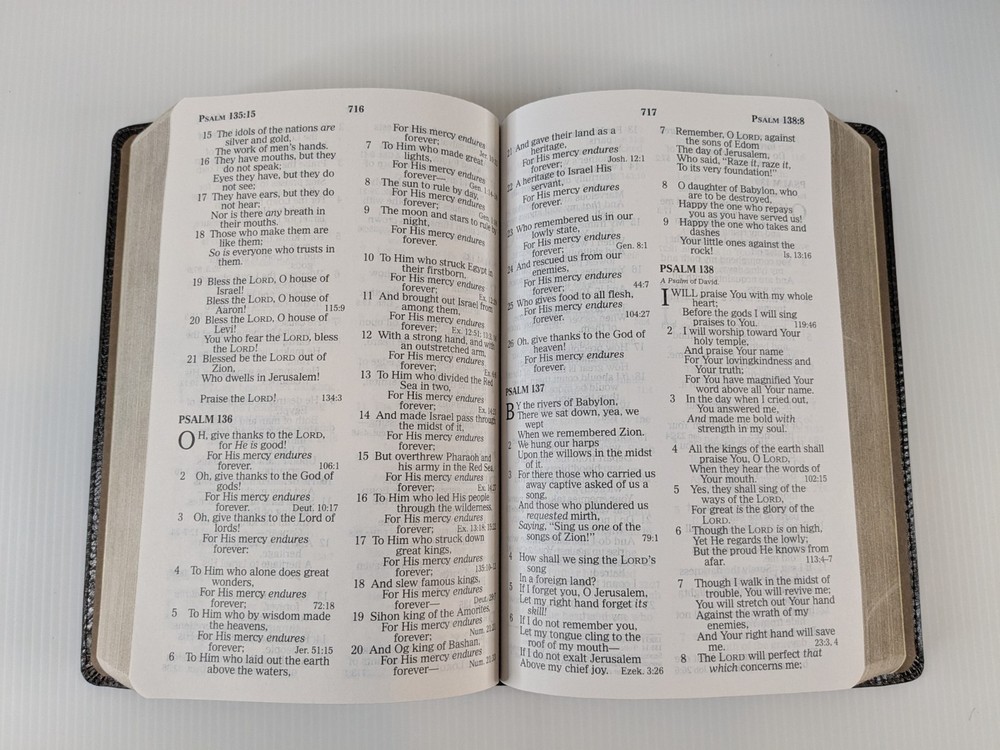 PSALM 135:15
716
15 The idols of the nations are
silver and gold,
The work of men's hands.
16 They have mouths, but they
do not speak;
Eyes they have, but they do
not see;
17 They have ears, but they do
not hear;
Nor is there any breath in
their mouths.
18 Those who make them are
like them;
So is everyone who trusts in
them.
19 Bless the LORD, O house of
Israel!
Bless the LORD, O house of
Aaron! 115:9
20 Bless the LORD, O house of
Levi!
You who fear the LORD, bless
the LORD!
21 Blessed be the LORD out of
Zion,
Who dwells in Jerusalem!
Praise the LORD! 134:3
PSALM 136
OH, give thanks to the LORD,
for He is good!
For His mercy endures
forever. 106:1
2 Oh, give thanks to the God of
gods!
For His mercy endures
forever. Deut. 10:17
3 Oh, give thanks to the Lord of
lords!
For His mercy endures
forever:
4 To Him who alone does great
wonders,
For His mercy endures
forever; 72:18
5 To Him who by wisdom made
the heavens,
For His mercy endures
forever; Jer. 51:15
6 To Him who laid out the earth
above the waters,
For His mercy endures
forever; Jer.
7 To Him who made great
lights,
For His mercy endures
forever— Gen.
8 The sun to rule by day,
For His mercy endures
forever; Gen.
9 The moon and stars to rule by
night,
For His mercy endures
forever.
10 To Him who struck Egypt in
their firstborn,
For His mercy endures
forever; Ex.
11 And brought out Israel from
among them,
For His mercy endures
forever; Ex. 12:51;
12 With a strong hand, and with
an outstretched arm,
For His mercy endures
forever; Ex.
13 To Him who divided the Red
Sea in two,
For His mercy endures
forever; Ex.
14 And made Israel pass through
the midst of it,
For His mercy endures
forever;
15 But overthrew Pharaoh and
his army in the Red Sea,
For His mercy endures
forever; Ex.
16 To Him who led His people
through the wilderness,
For His mercy endures
forever; Ex. 13:18;
17 To Him who struck down
great kings,
For His mercy endures
forever;
18 And slew famous kings,
For His mercy endures
forever— Deut.
19 Sihon king of the Amorites,
For His mercy endures
forever; Num.
20 And Og king of Bashan,
For His mercy endures
forever— Num.
717
PSALM 138:8
21 And gave their land as a
heritage,
For His mercy endures
forever; Josh. 12:1
22 A heritage to Israel His
servant,
For His mercy endures
forever.
23 Who remembered us in our
lowly state,
For His mercy endures
forever; Gen. 8:1
24 And rescued us from our
enemies,
For His mercy endures
forever; 44:7
25 Who gives food to all flesh,
For His mercy endures
forever. 104:27
26 Oh, give thanks to the God of
heaven!
For His mercy endures
forever.
PSALM 137
BY the rivers of Babylon,
There we sat down, yea, we
wept
When we remembered Zion.
2 We hung our harps
Upon the willows in the midst
of it.
3 For there those who carried us
away captive asked of us a
song,
And those who plundered us
requested mirth,
Saying, "Sing us one of the
songs of Zion!" 79:1
4 How shall we sing the LORD'S
song
In a foreign land?
5 If I forget you, O Jerusalem,
Let my right hand forget its
skill!
6 If I do not remember you,
Let my tongue cling to the
roof of my mouth—
If I do not exalt Jerusalem
Above my chief joy. Ezek. 3:26
7 Remember, O LORD, against
the sons of Edom
The day of Jerusalem,
Who said, "Raze it, raze it,
To its very foundation!"
8 O daughter of Babylon, who
are to be destroyed,
Happy the one who repays
you as you have served us!
9 Happy the one who takes and
dashes
Your little ones against the
rock! Is. 13:16
PSALM 138
A Psalm of David.
I WILL praise You with my whole
heart;
Before the gods I will sing
praises to You. 119:46
2 I will worship toward Your
holy temple,
And praise Your name
For Your lovingkindness and
Your truth;
For You have magnified Your
word above all Your name.
3 In the day when I cried out,
You answered me,
And made me bold with
strength in my soul.
4 All the kings of the earth shall
praise You, O LORD,
When they hear the words of
Your mouth. 102:15
5 Yes, they shall sing of the
ways of the LORD,
For great is the glory of the
LORD.
6 Though the LORD is on high,
Yet He regards the lowly;
But the proud He knows from
afar. 113:4–7
7 Though I walk in the midst of
trouble, You will revive me;
You will stretch out Your hand
Against the wrath of my
enemies,
And Your right hand will save
me. 23:3, 4
8 The LORD will perfect that
which concerns me;